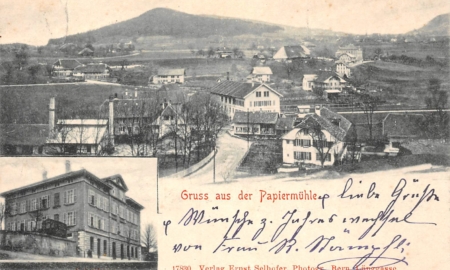 Gruss aus der Papiermühle
liebe Grüße
Wünsche z. Jahreswechsel
von Frau R. Stämpfli
17890. Verlag Ernst Selhofer, Photogr. Bern